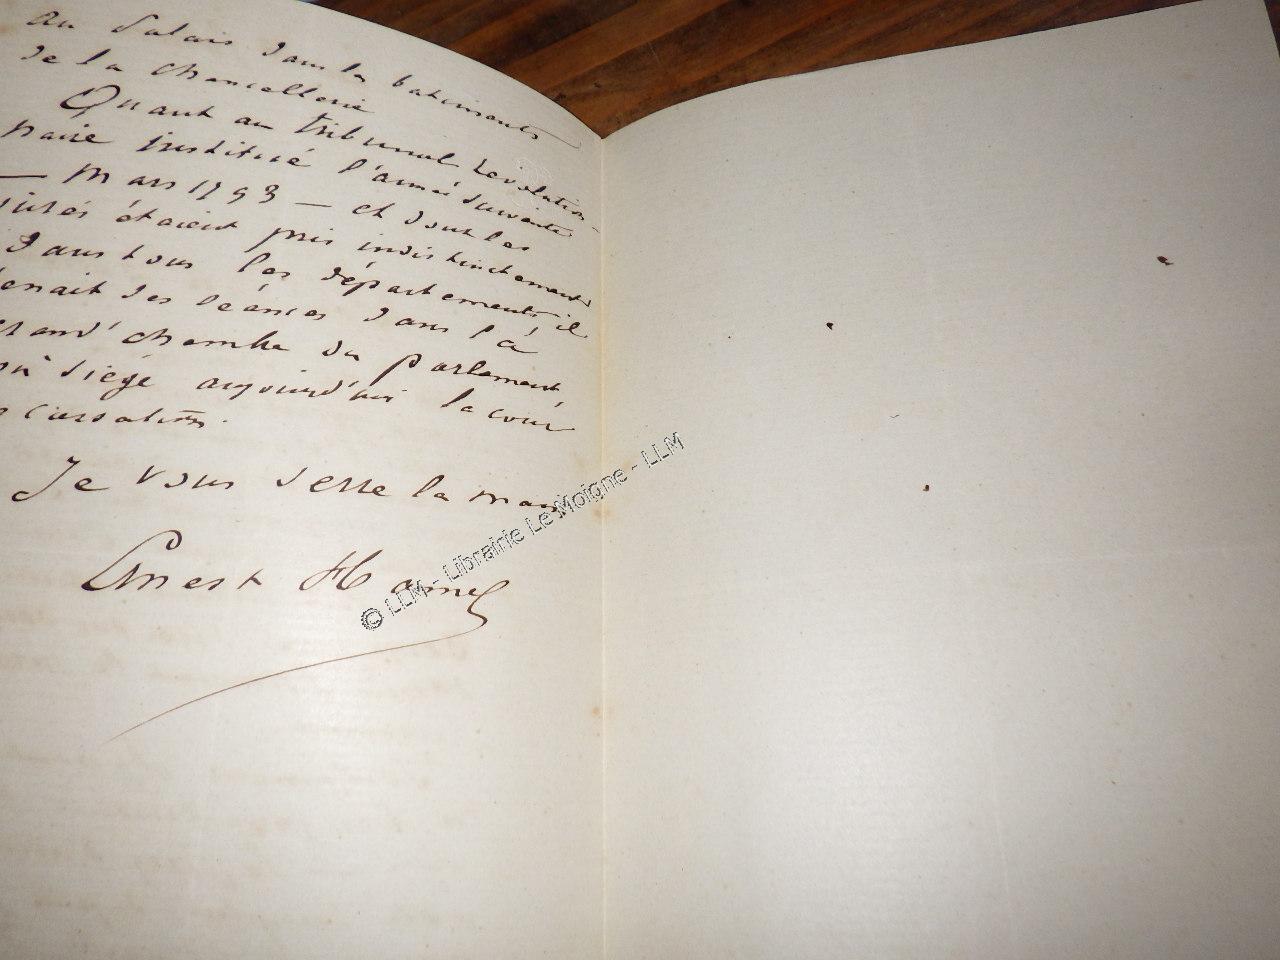 au Palais dans les batiments
de la Chancellerie
Quant au tribunal révolution-
naire institué l'année suivante
— mars 1793 — et dont les
jurés étaient pris indistinctement
dans tous les départements, il
tenait ses séances dans la
grand' chambre du parlement,
où siège aujourd'hui la cour
de cassation.
Je vous serre la main
Ernest Hamel
© LLM - Librairie Le Moigne - LLM